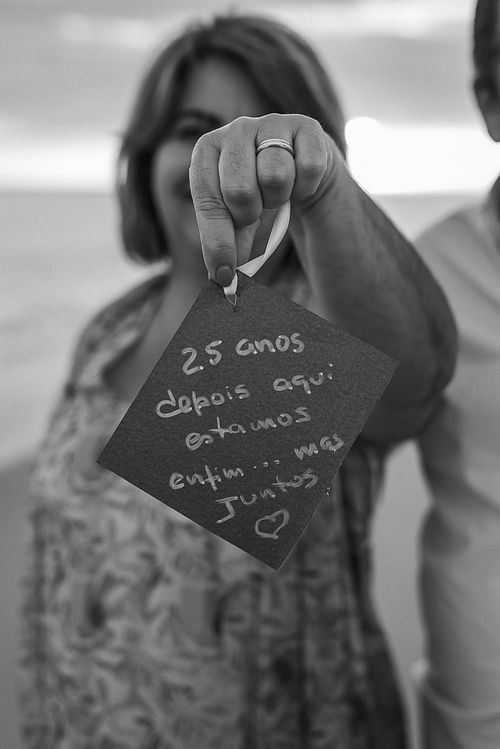 25 anos
depois aqui
estamos
enfim... mas
Juntos